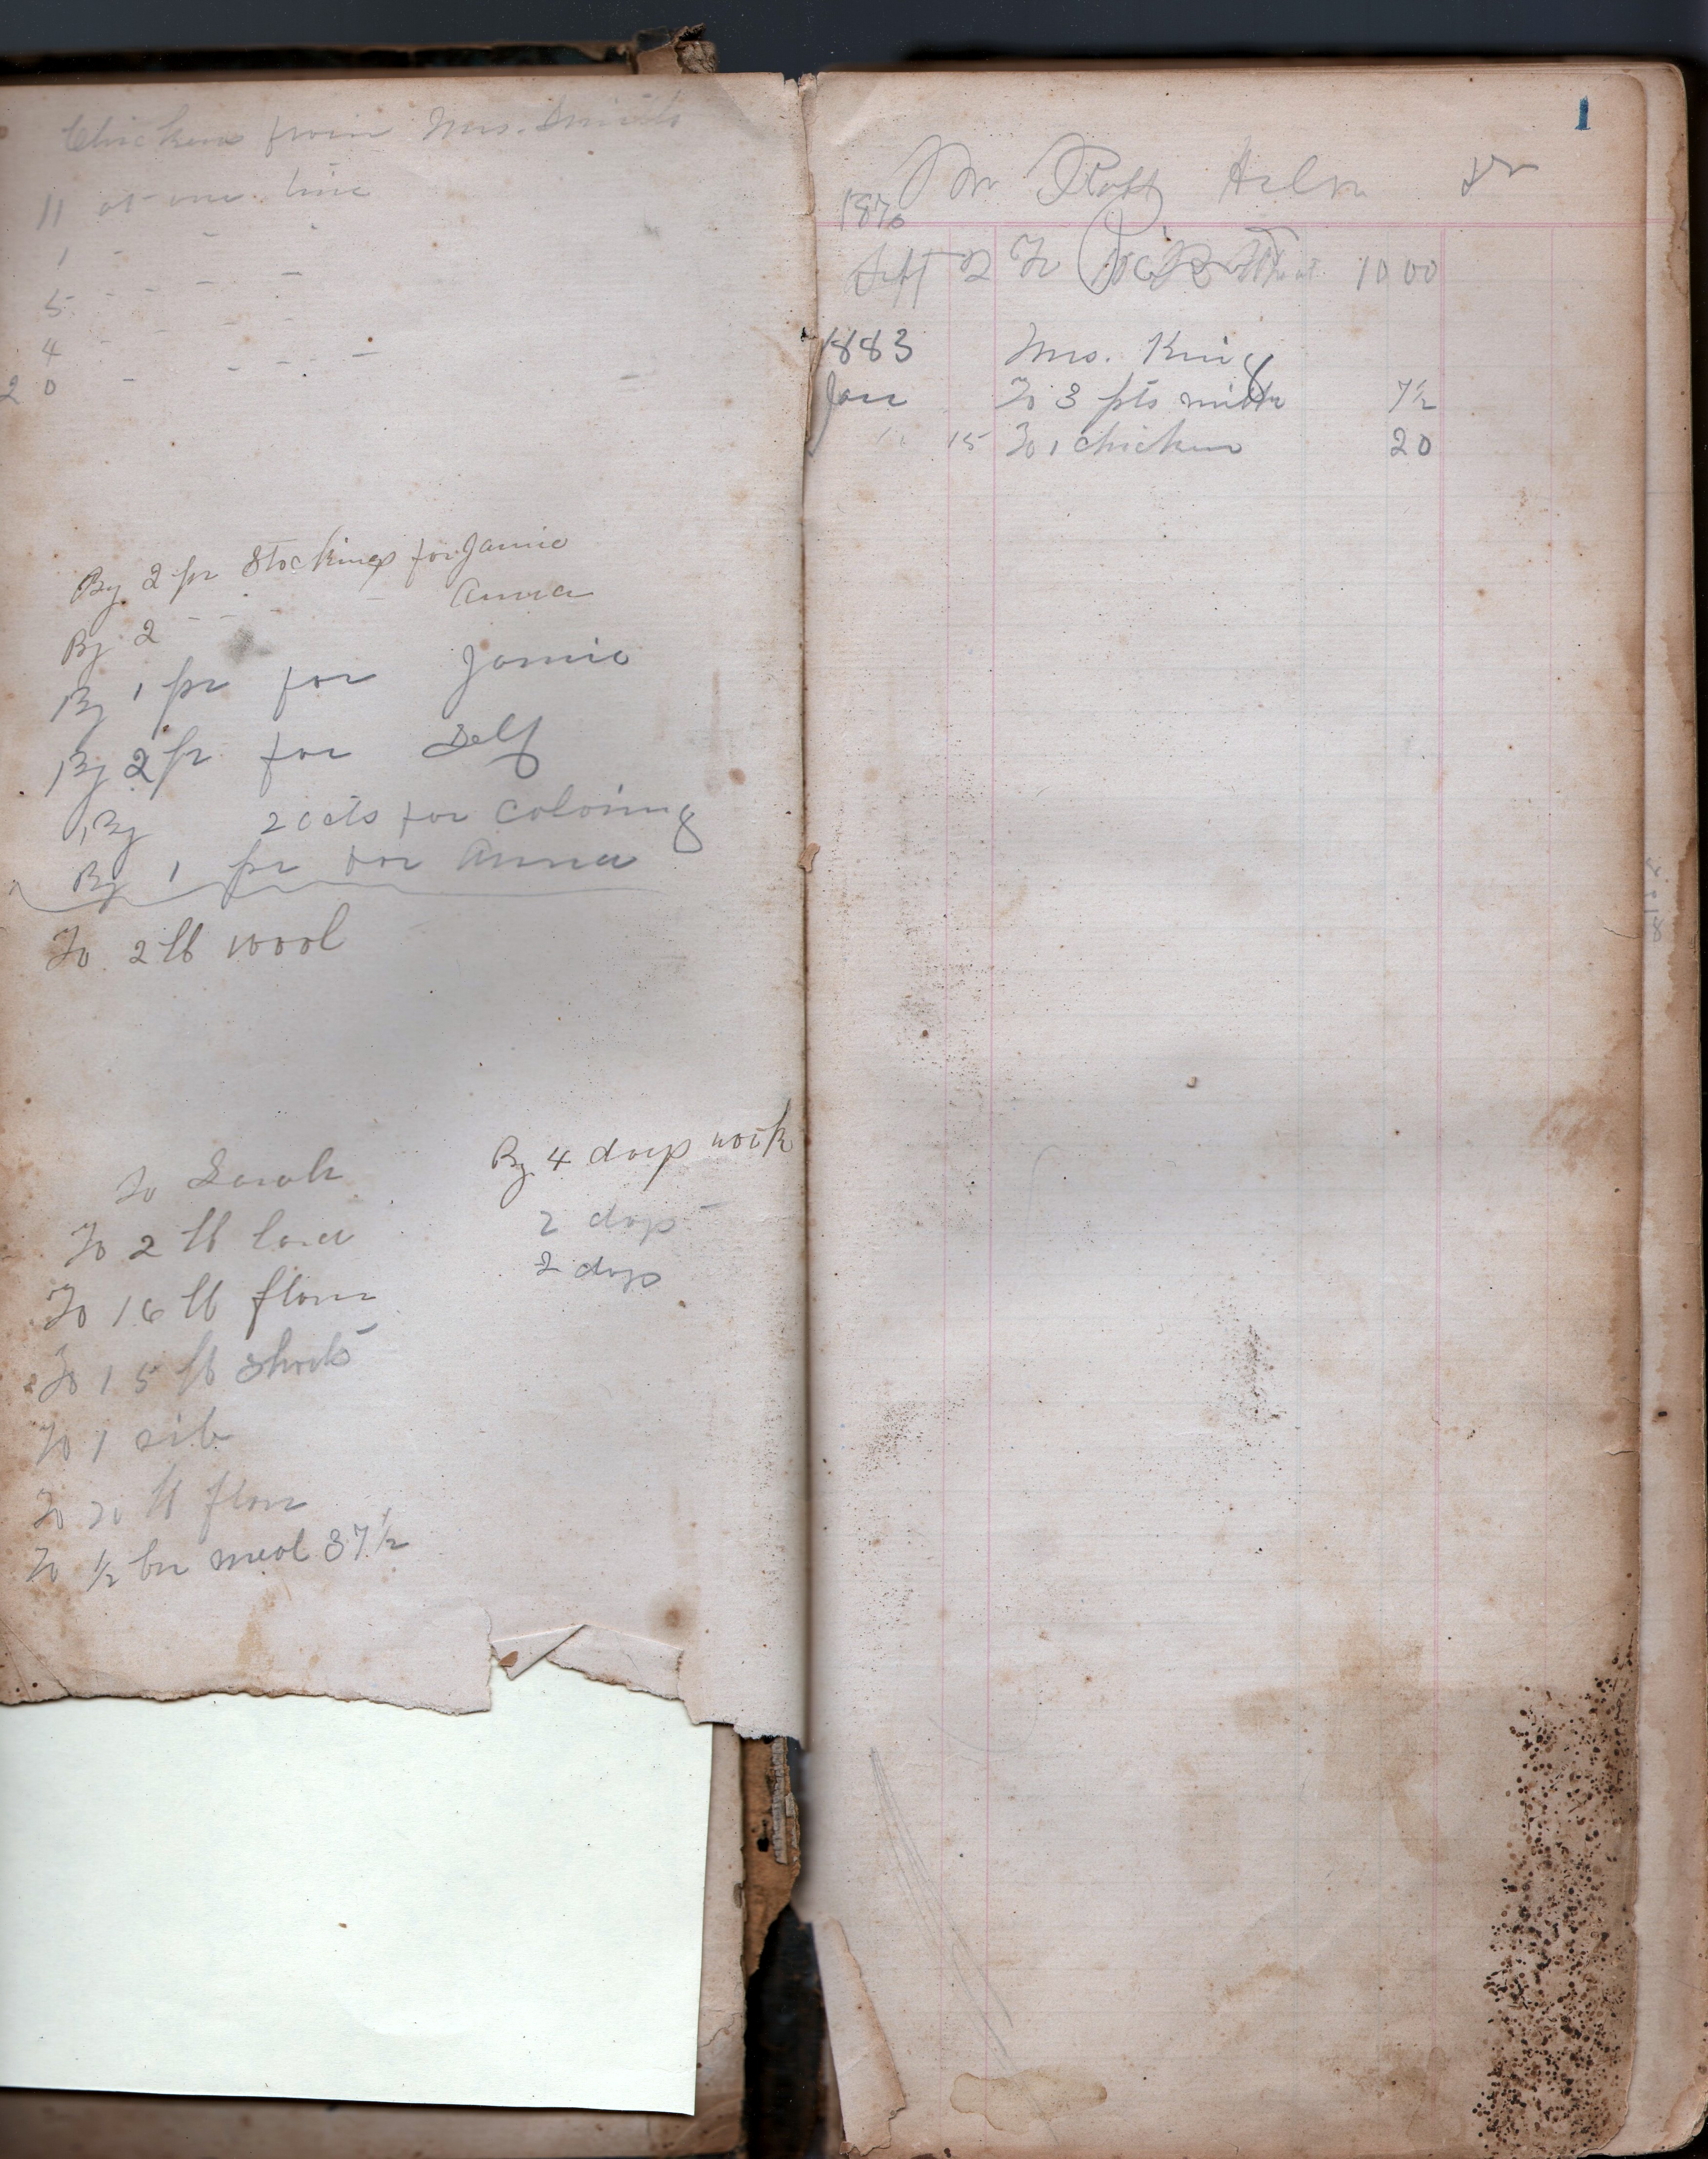 Chickens from Mrs. Smith
11 at one time
1 - - -
5 - - - - -
4 - - - -
20 - - - - -
By 2 pr Stockings for Jamie
By 2 - - - Anna
By 1 pr for Jamie
By 2 pr for Self
By 20 cts for Coloring
By 1 pr for Anna
To 2 lb wool
To Sarah
To 2 lb lard
To 16 lb flour
To 15 lb shorts
To 1 rib
To 20 lb flour
To ½ bu meal 37½
By 4 days work
2 days
2 days
1
Mr Dr
1870
Sept 2 To 10 00
1883 Mrs. King
Jan To 3 pts milk 7½
" 15 To 1 chicken 20